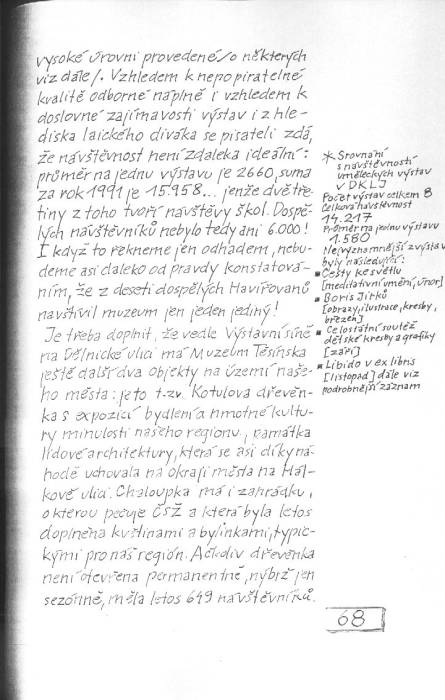 vysoké úrovni provedené /o některých
viz dále/. Vzhledem k nepopiratelné
kvalitě odborné náplně i vzhledem k
doslovné zajímavosti výstav i z hle-
diska laického diváka se pisateli zdá,
že návštěvnost není zdaleka ideální:
průměr na jednu výstavu je 2660, suma
za rok 1991 je 15.958... jenže dvě tře-
tiny z toho tvoří návštěvy škol. Dospě-
lých návštěvníků nebylo tedy ani 6.000!
I když to řekneme jen odhadem, nebu-
deme asi daleko od pravdy konstatová-
ním, že z deseti dospělých Havířovanů
navštívil muzeum jen jeden jediný!
Je třeba doplnit, že vedle Výstavní síně
na Dělnické ulici má Muzeum Těšínska
ještě další dva objekty na území naše-
ho města: je to t.zv. Kotulova dřevěn-
ka s expozicí bydlení a hmotné kultu-
ry minulosti našeho regionu, památka
lidové architektury, která se asi díky ná-
hodě uchovala na okraji města na Hál-
kově ulici. Chaloupka má i zahrádku,
o kterou pečuje ČSŽ a která byla letos
doplněna květinami a bylinkami, typic-
kými pro náš región. Ačkoliv dřevěnka
není otevřena permanentně, nýbrž jen
sezónně, měla letos 649 návštěvníků.
* Srovnání
s návštěvností
uměleckých výstav
v DKLJ
Počet výstav celkem 8
Celková návštěvnost
14.217
Průměr na jednu výstavu
1.580
Nejvýznamnější z výstav
byly následující:
▪ Cesty ke světlu
[meditativní umění, únor]
▪ Boris Jirků
[obrazy, ilustrace, kresby,
březen]
▪ Celostátní soutěž
dětské kresby a grafiky
[září]
▪ Libido v ex libris
[listopad] dále viz
podrobnější záznam
68